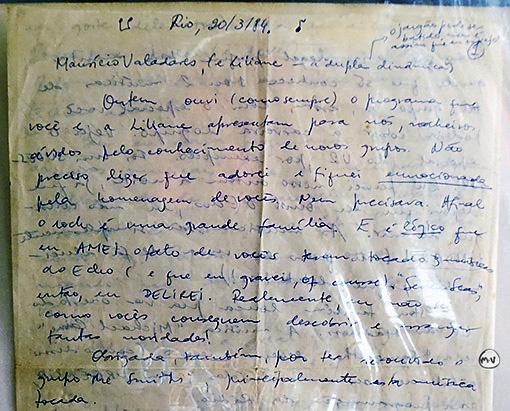 Rio, 20/3/84.
o jargão pode ser
batido, mas é
assim que eu vejo
Maurício Valadares, (e Liliane – a dupla dinâmica)
Ontem ouvi (como sempre) o programa que
você e a Liliane apresentam para nós, rockeiros
ávidos pelo conhecimento de novos grupos. Não
preciso dizer que adorei e fiquei emocionada
pela homenagem de vocês. Nem precisava. Afinal
o rock é uma grande família. E é lógico que
eu AMEI o fato de vocês terem tocado 3 músicas
do Echo (e que eu gravei, of course!).
então, eu DELIREI. Realmente, eu não sei
"como vocês conseguem descobrir e
tantas novidades!
Obrigada também, por ter o
grupo The Smiths, principalmente esta música
tocada.
MV